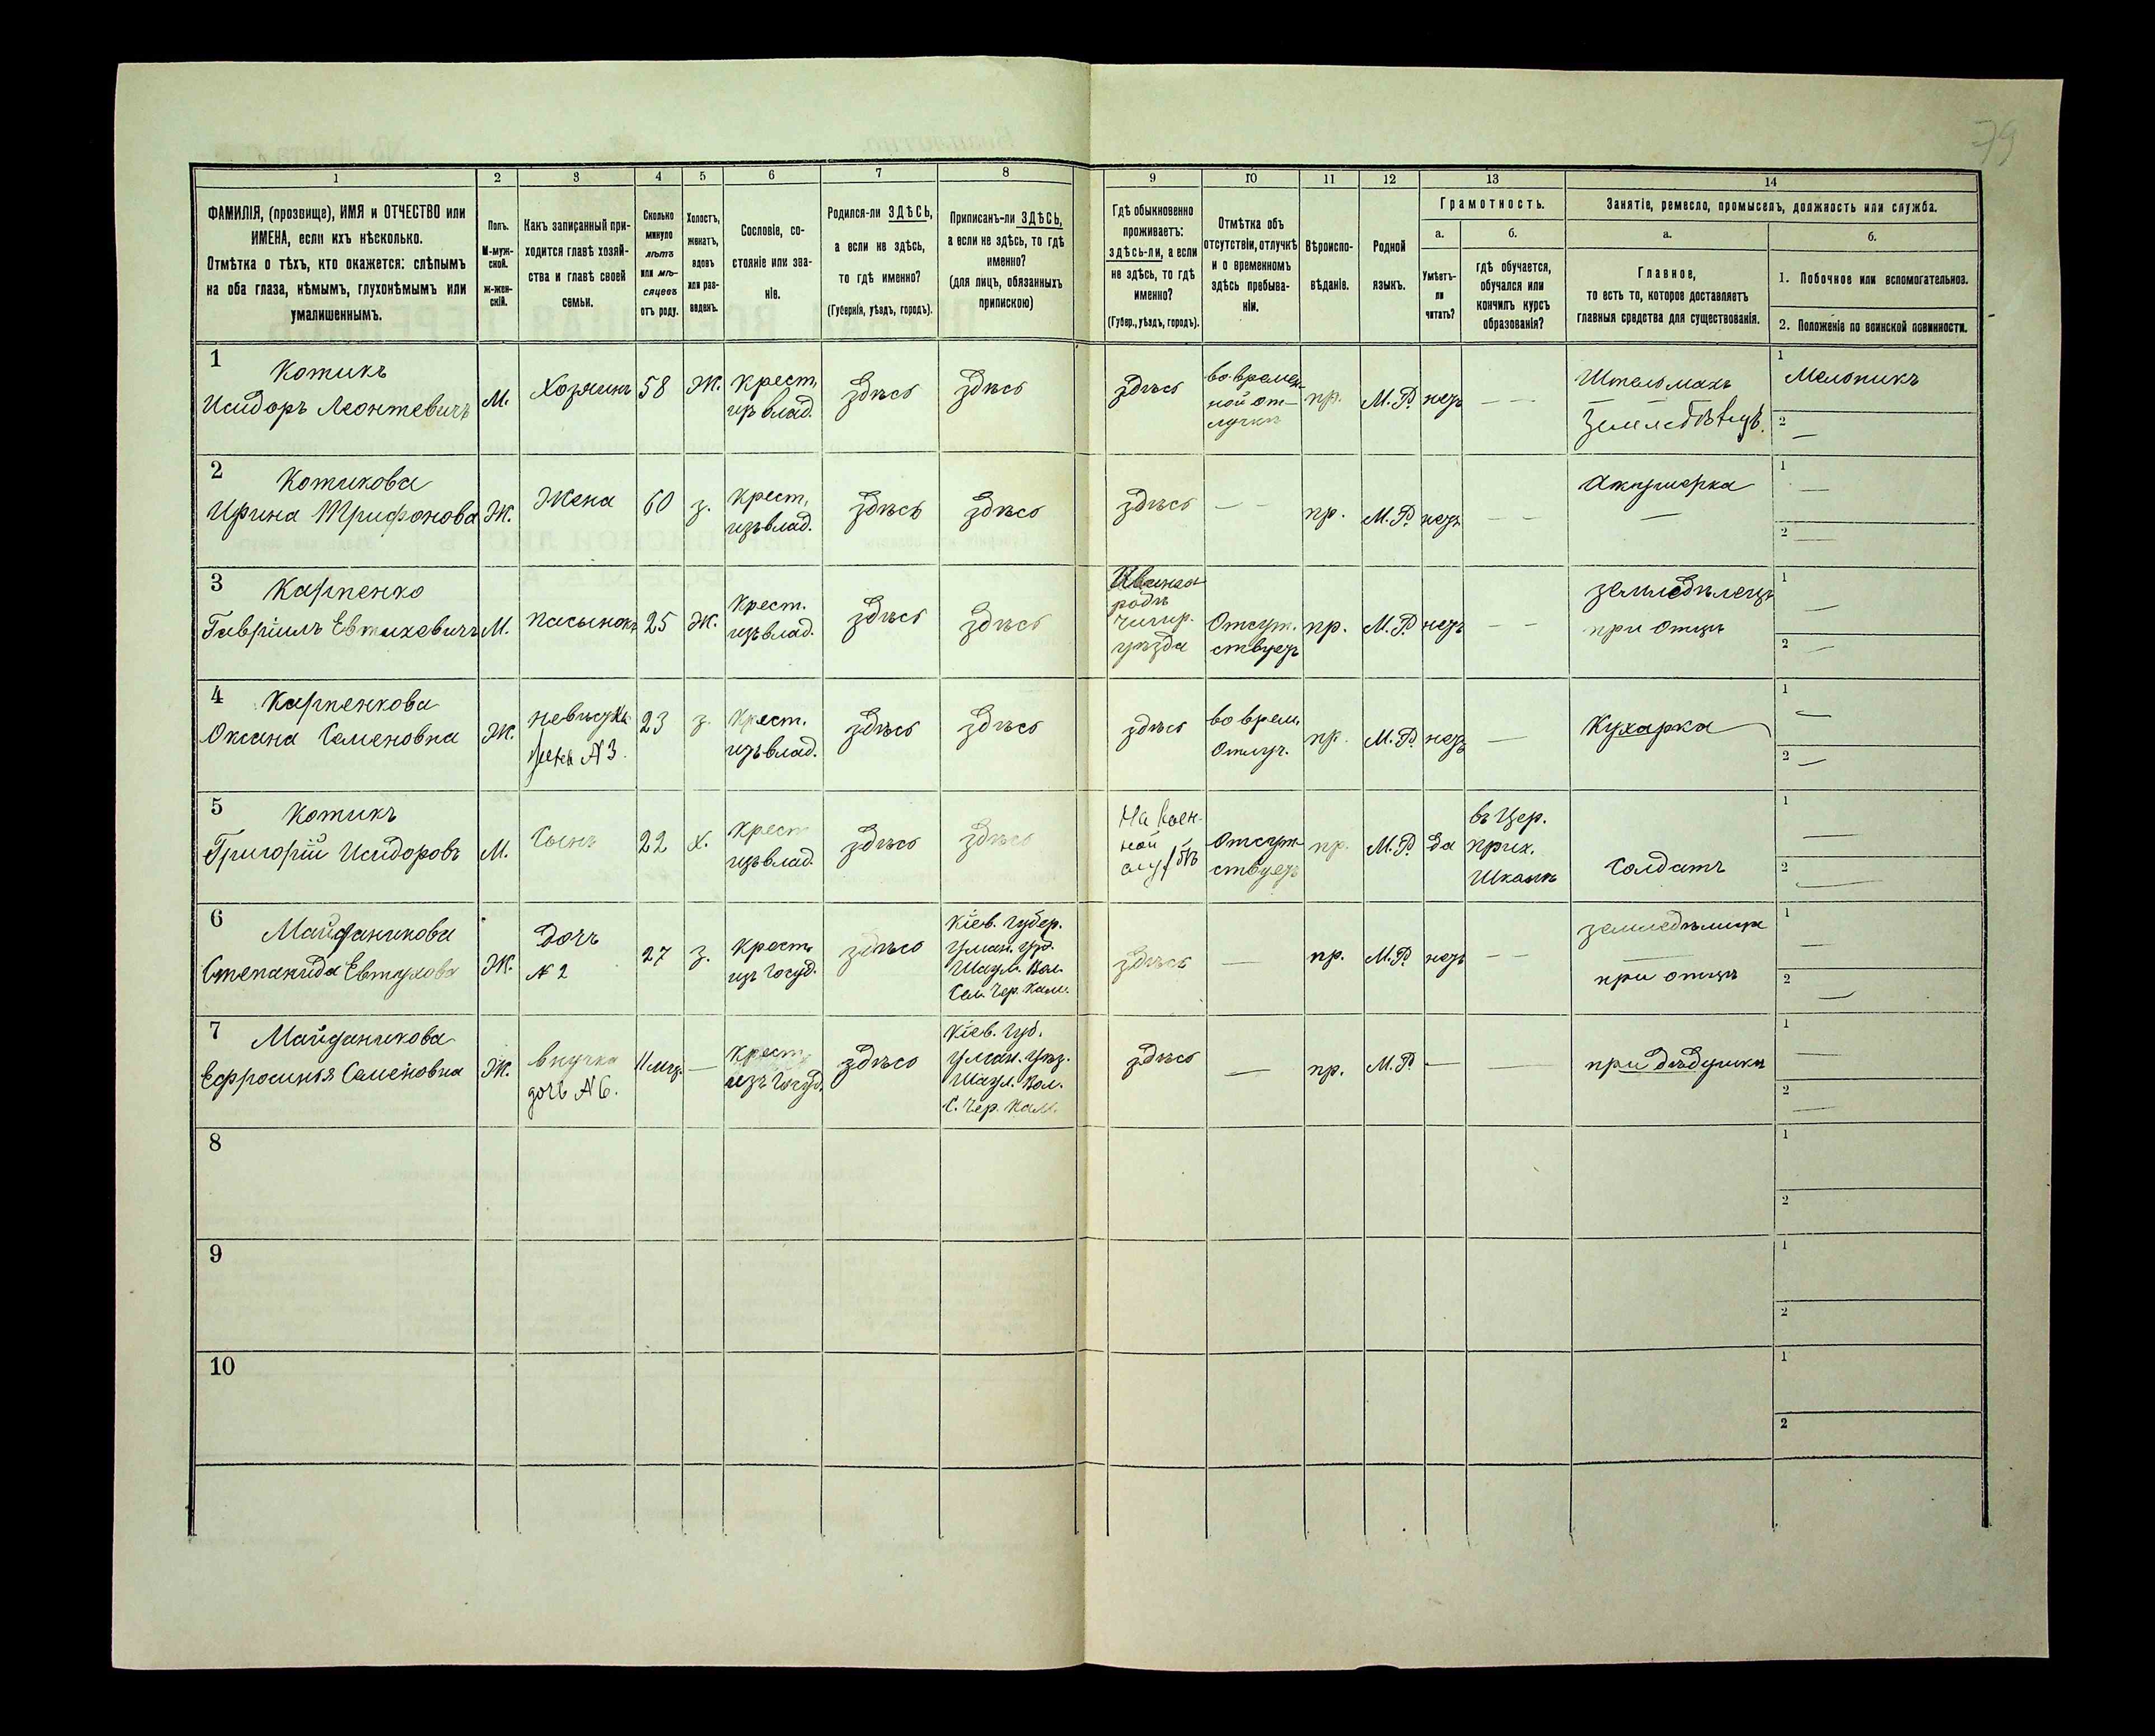 79
1 2 3 4 5 6 7 8 9 10 11 12 13 14
ФАМИЛІЯ, (прозвище), ИМЯ и ОТЧЕСТВО или
ИМЕНА, если ихъ нѣсколько.
Отмѣтка о тѣхъ, кто окажется: слѣпымъ
на оба глаза, нѣмымъ, глухонѣмымъ или
умалишеннымъ.
Полъ.
М-муж-
ской.
Ж-жен-
скій.
Какъ записанный при-
ходится главѣ хозяй-
ства и главѣ своей
семьи.
Сколько
минуло
лѣтъ
или мѣ-
сяцевъ
отъ роду.
Холостъ,
женатъ,
вдовъ
или раз-
веденъ.
Сословіе, со-
стояніе или зва-
ніе.
Родился-ли ЗДѢСЬ,
а если не здѣсь,
то гдѣ именно?
(Губернія, уѣздъ, городъ).
Приписанъ-ли ЗДѢСЬ,
а если не здѣсь, то гдѣ
именно?
(для лицъ, обязанныхъ
припискою)
Гдѣ обыкновенно
проживаетъ:
здѣсь-ли, а если
не здѣсь, то гдѣ
именно?
(Губер., уѣздъ, городъ).
Отмѣтка объ
отсутствіи, отлучкѣ
и о временномъ
здѣсь пребыва-
ніи.
Вѣроиспо-
вѣданіе.
Родной
языкъ.
Грамотность.
а.
Умѣетъ-
ли
читать?
б.
гдѣ обучается,
обучался или
кончилъ курсъ
образованія?
Занятіе, ремесло, промыселъ, должность или служба.
а.
Главное,
то есть то, которое доставляетъ
главныя средства для существованія.
б.
1. Побочное или вспомогательное.
2. Положеніе по воинской повинности.
1
Котикъ
Исидоръ Леонтевичъ
М.
Хозяинъ
58
Ж.
Крест.
изъ влад.
здѣсь
здѣсь
здѣсь
во времен-
ной от-
лучкѣ
пр.
М.Р.
нѣтъ
— —
Штельмахъ
Земледѣлецъ.
1
Мельникъ
2
—
2
Котикова
Ирина Трифонова
Ж.
Жена
60
з.
Крест.
изъ влад.
здѣсь
здѣсь
здѣсь
— —
пр.
М.Р.
нѣтъ
— —
Акушерка
—
1
—
2
—
3
Карпенко
Гавріилъ Евтихевичъ
М.
пасынокъ
25
Ж.
Крест.
изъ влад.
здѣсь
здѣсь
родъ
Чигир.
уѣзда
Отсут-
ствуетъ
пр.
М.Р.
нѣтъ
— —
земледѣлецъ
при отцѣ
1
—
2
—
4
Карпенкова
Оксана Семеновна
Ж.
невѣстка
жена №3.
23
з.
Крест.
изъ влад.
здѣсь
здѣсь
здѣсь
во врем.
Отлуч.
пр.
М.Р.
нѣтъ
—
Кухарка
1
—
2
—
5
Котикъ
Григорій Исидоровъ
М.
Сынъ
22
х.
Крест
изъ влад.
здѣсь
здѣсь
На воен-
ной
службѣ
Отсут-
ствуетъ
пр.
М.Р.
да
въ Цер.
прих.
Школѣ
Солдатъ
1
—
2
—
6
Майданикова
Степанида Евтухова
Ж.
дочь
№ 2
27
з.
Крест.
изъ Госуд.
здѣсь
Кіев. Губер.
Уман. Уѣз.
Шаул. Вол.
Сел. Чер. Кам.
здѣсь
—
пр.
М.Р.
нѣтъ
— —
земледѣлица
при отцѣ
1
—
2
—
7
Майданикова
Ефросинья Семеновна
Ж.
внучка
дочь №6.
11 мѣц.
—
Крест.
изъ Госуд.
здѣсь
Кіев. Губ.
Уман. Уѣз.
Шаул. Вол.
С. Чер. Кам.
здѣсь
—
пр.
М.Р.
—
—
при дѣдушкѣ
1
—
2
—
8
1
2
9
1
2
10
1
2